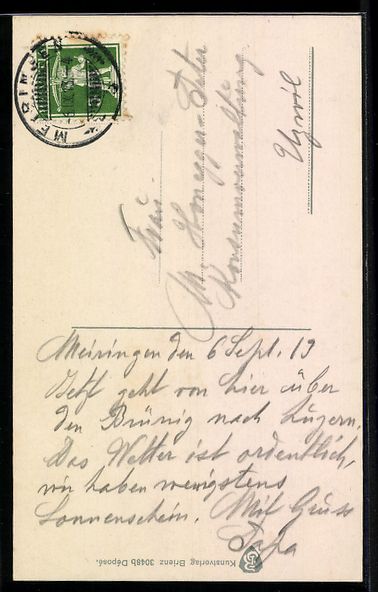 Meiringen den 6 Sept. 19
Jetzt geht von hier über
den Brünig nach Luzern.
Das Wetter ist ordentlich,
wir haben wenigstens
Sonnenschein. Mit Gruss
Papa
Frau
M. Honegger-
Konsumverwaltung
Uzwil
MEIRINGEN
Kunstverlag Brienz 3048b Déposé.